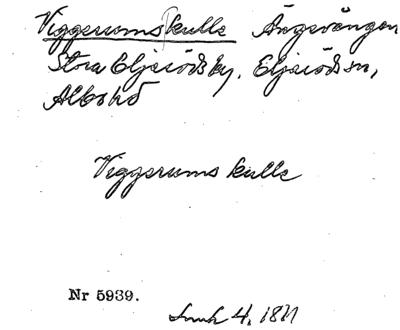 Viggerums kulle Ängavången
Stora Eljaröds by, Eljaröds sn,
Albo hd
Viggerums kulle
Nr 5939.
4, 1811